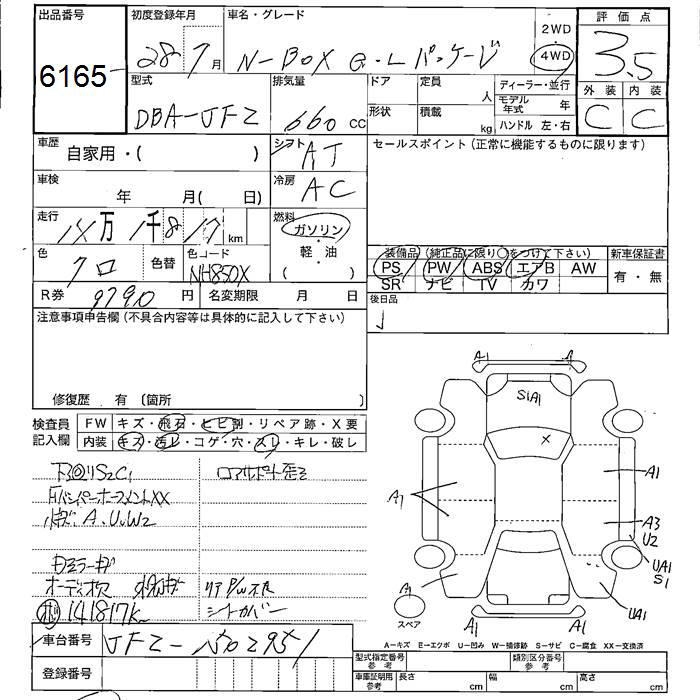 出品番号
6165
初度登録年月
28年7月
車名・グレード
N-BOX G・Lパッケージ
2WD
4WD
評価点
3.5
外装 内装
C C
型式
DBA-JF2
排気量
660 cc
ドア
定員
人
形状
積載
kg
ディーラー・並行
モデル年式 年
ハンドル 左・右
車歴
自家用・( )
シフト
AT
セールスポイント(正常に機能するものに限ります)
車検
年 月( 日)
冷房
AC
走行
14万1千817 km
燃料
ガソリン
軽油
( )
色
クロ
色替
色コード
NH850X
装備品(純正品に限り○をつけて下さい)
PS PW ABS エアB AW
SR ナビ TV カワ
新車保証書
有・無
R券
9790 円
名変期限 月 日
後日品
注意事項申告欄(不具合内容等は具体的に記入して下さい)
修復歴 有 (箇所 )
検査員記入欄
FW キズ・飛石・ヒビ割・リペア跡・X要
内装 キズ・汚レ・コゲ・穴・スレ・キレ・破レ
ロアサポート歪ミ
A、U、W2
シートカバー
141817k
車台番号
登録番号
A1 A1
S1A1
X
A1
A1
A3
U2
UA1
S1
A1
UA1
A1 A1
スペア
A-キズ E-エクボ U-凹み W-補修跡 S-サビ C-腐食 XX-交換済
型式指定番号 参考
類別区分番号 参考
車庫証明用 参考
長さ cm
幅 cm
高さ cm